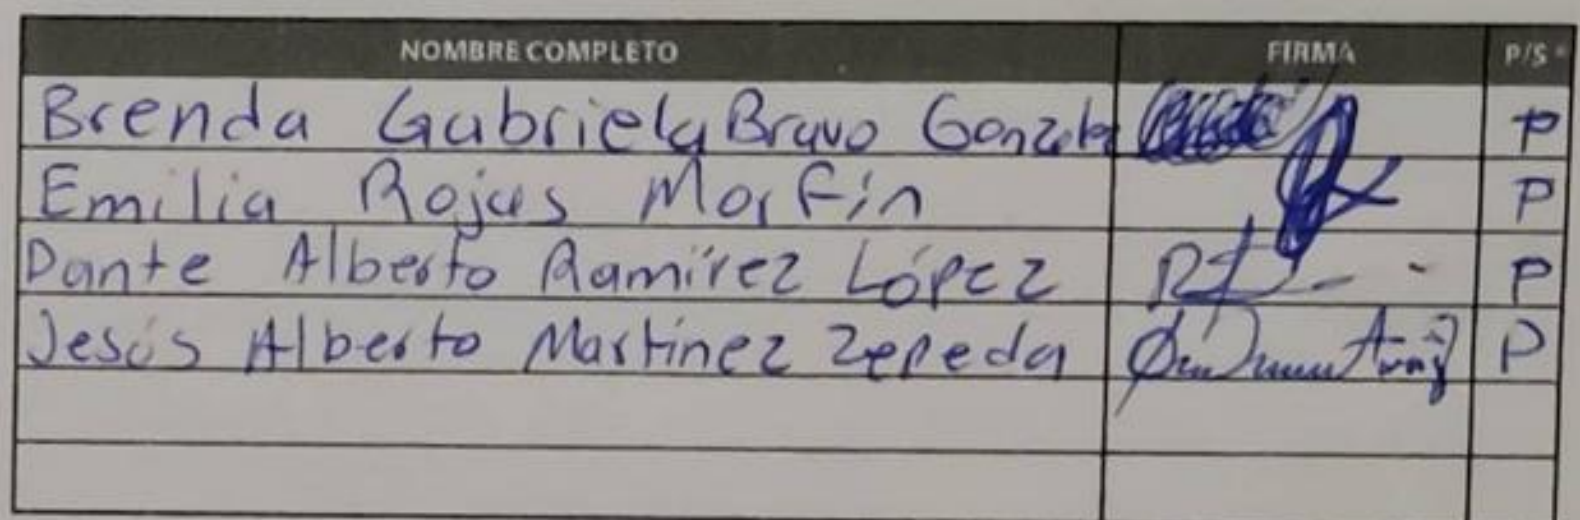 NOMBRE COMPLETO FIRMA P/S *
Brenda Gabriela Bravo Gonzalez P
Emilia Rojas Morfín P
Dante Alberto Ramírez López P
Jesús Alberto Martínez Zepeda P